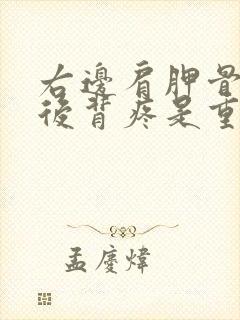 右邊肩胛骨
後背疼是重
孟慶煒